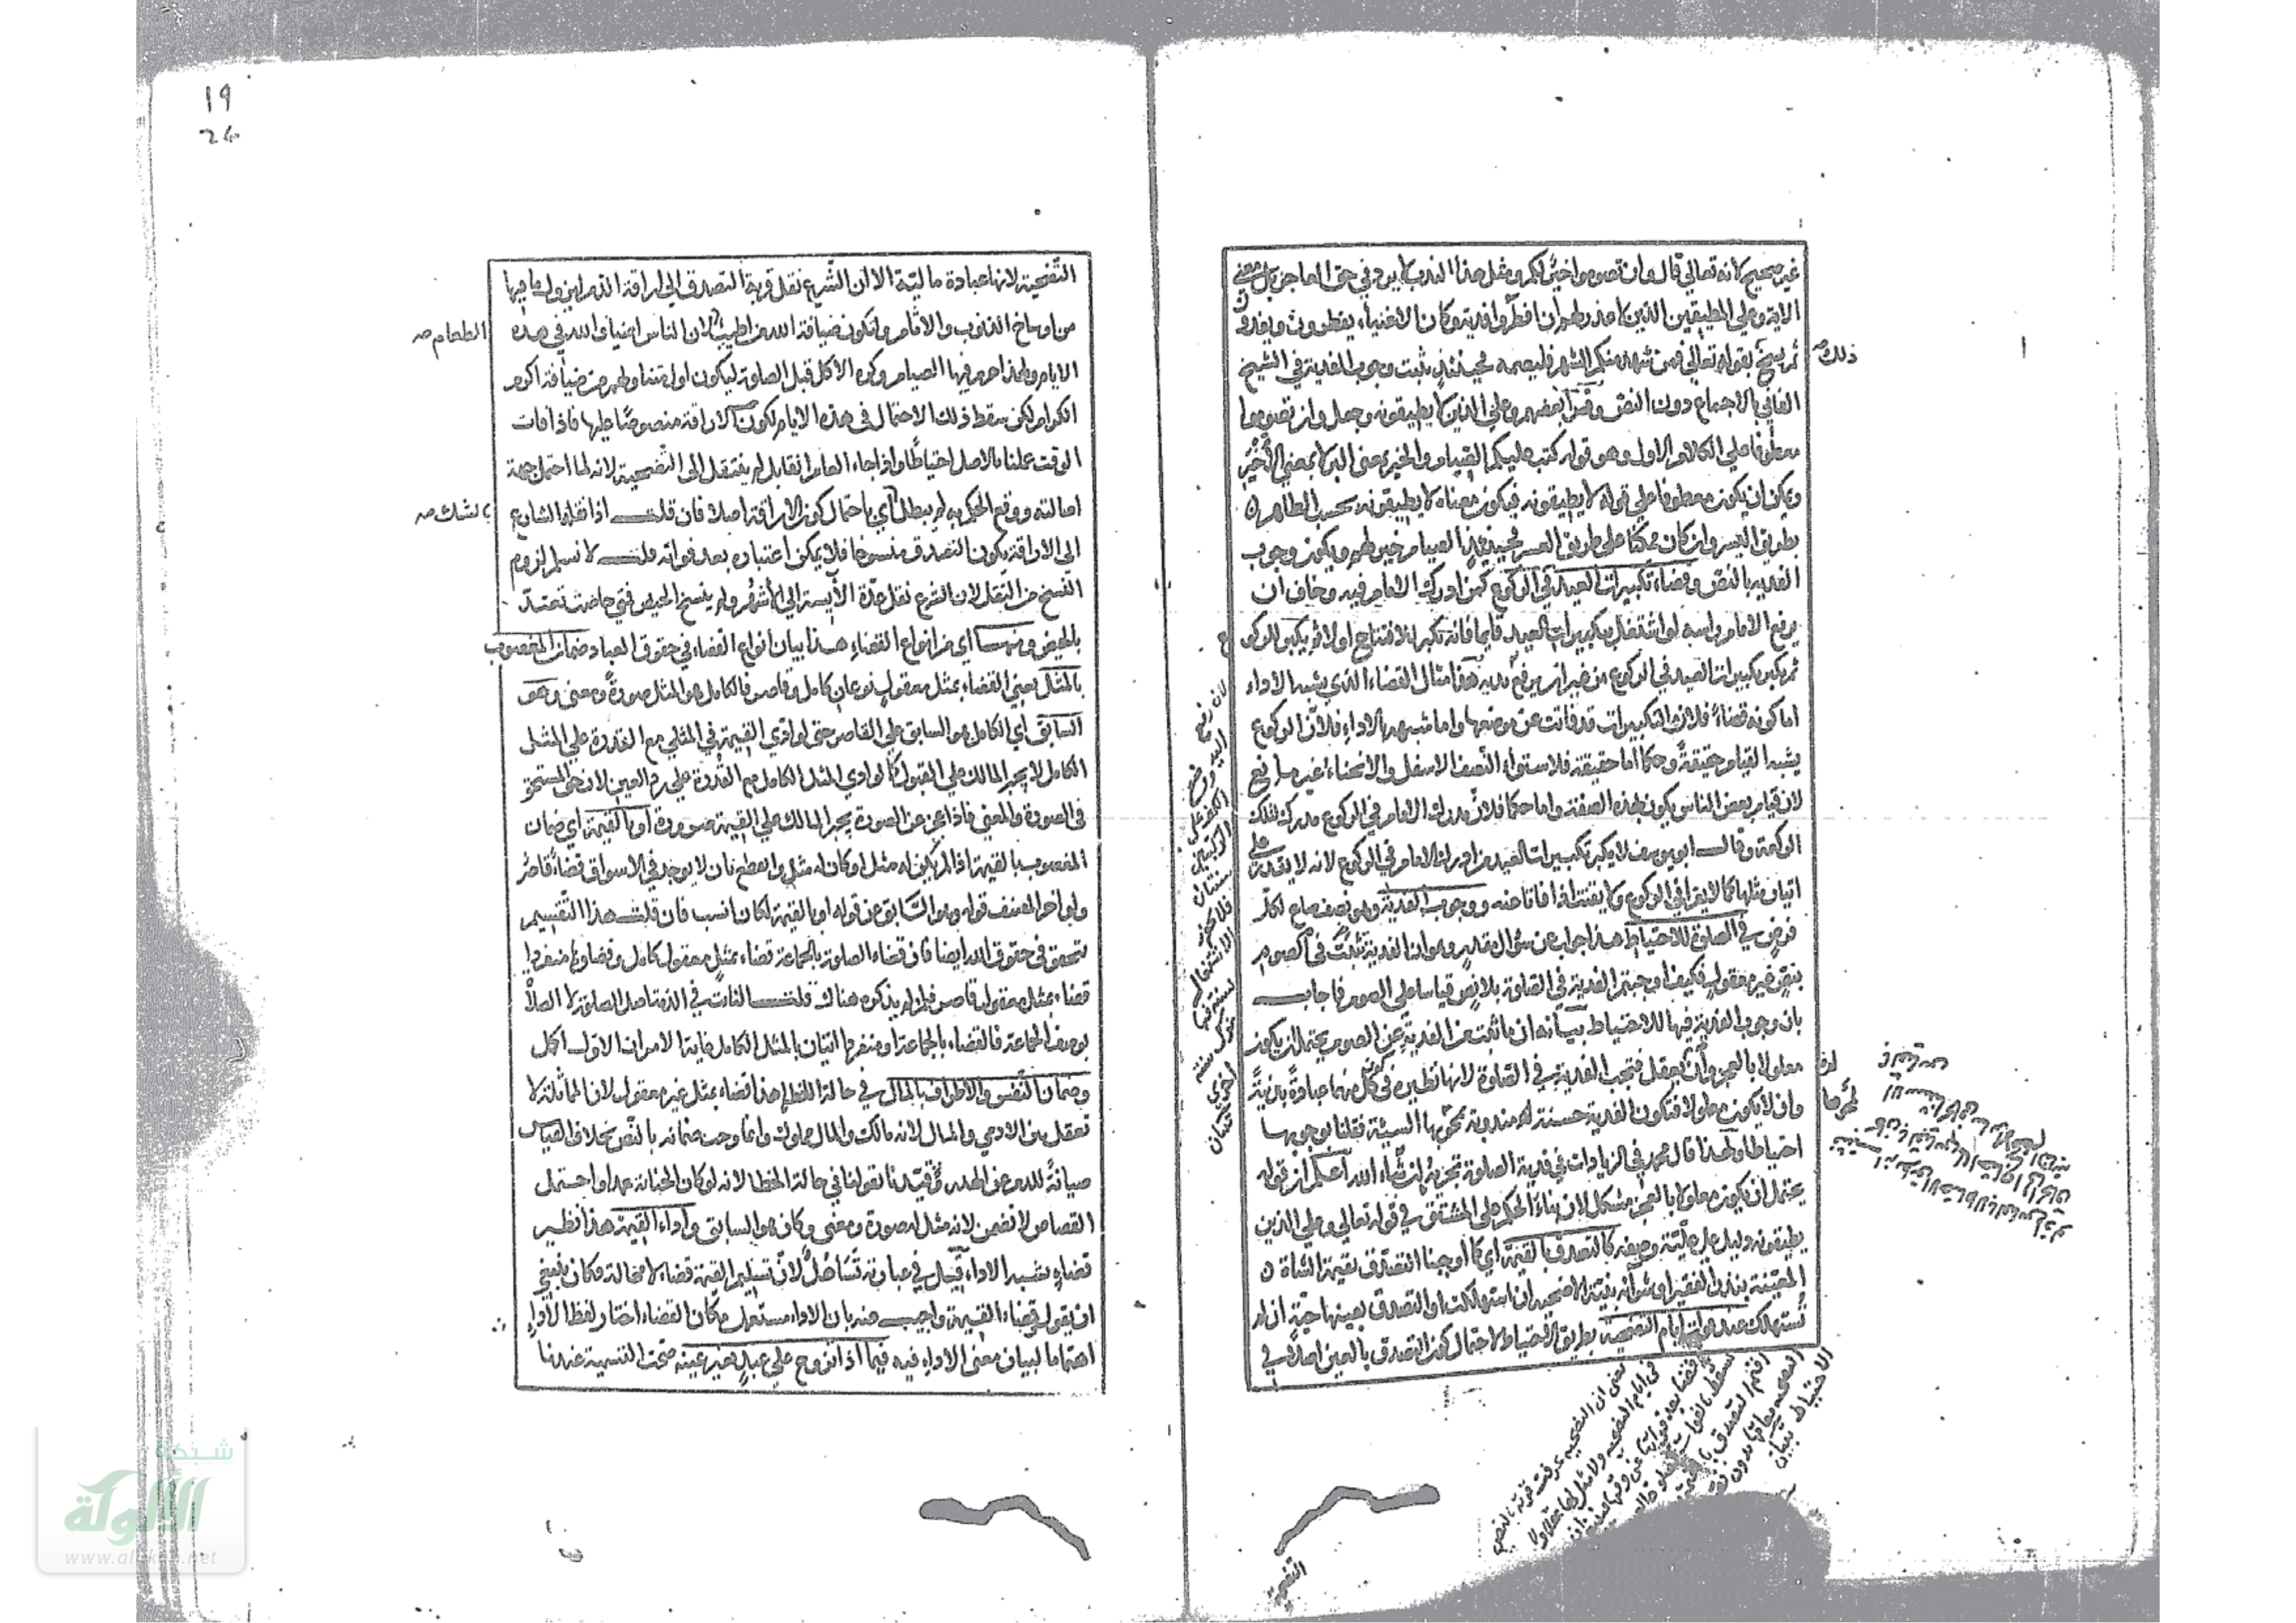 غير صحيح لانه تعالى قال وان تصوموا خير لكم ومثل هذا الندب لا يرد في حق العاجز بل معنى
الاية وعلى المطيقين الذين لا عذر لهم ان افطروا فدية وكان الاغنياء يفطرون ويفدون
ثم نسخ بقوله تعالى فمن شهد منكم الشهر فليصمه فحينئذ يثبت وجوب الفدية في الشيخ
ذلك
الفاني بالاجماع دون النص وقرأ بعضهم وعلى الذين لا يطيقونه وجعل وان تصوموا
معطوفا على الكلام الاول وهو قوله كتب عليكم الصيام والخير بمعنى البر لا بمعنى الأخير
ويمكن ان يكون معطوفا على قوله لا يطيقونه فيكون معناه لا يطيقونه بحسب الظاهر
بطريق اليسر وان كان ممكنا على طريق العسر فحينئذ الصيام خير لهم ويكون وجوب
الفدية بالنص وقضاء تكبيرات العيد في الركوع كمن ادرك الامام فيه وخاف ان
يرفع الامام رأسه لو اشتغل بتكبيرات العيد قايما فانه تكبر للافتتاح اولا ثم يكبر للركوع
ثم يكبر تكبيرات العيد في الركوع من غير ان يرفع يديه هذا مثال القضاء الذي يشبه الاداء
اما كونه قضاء فلان التكبيرات قد فاتت عن موضعها واما شبهه بالاداء فلان الركوع
يشبه القيام حقيقة وحكما اما حقيقة فلاستواء النصف الاسفل والانحناء غير مانع
لان قيام بعض الناس يكون بهذه الصفة واما حكما فلان مدرك الامام في الركوع مدرك لتلك
الركعة وقال ابو يوسف لا يكبر تكبيرات العيد من ادرك الامام في الركوع لانه لا يقدر على
اتيان مثلها كما لا يقرأ في الركوع ولا يقنت اذا فاتا عنه ووجوب الفدية وهو نصف صاع لكل
فرض في الصلوة للاحتياط هذا جواب عن سؤال مقدر وهو ان الفدية ثبتت في الصوم
بنص غير معقول فكيف اوجبتم الفدية في الصلوة بلا نص قياسا على الصوم فاجاب
بان وجوب الفدية فيها للاحتياط بيانه ان ما ثبت من الفدية عن الصوم يحتمل ان يكون
معلولا بالعجز وان يعقل فتجب الفدية في الصلوة لانها نظيره في كون كل منهما عبادة بدنية
وان لا يكون معلولا فتكون الفدية حسنة مندوبة تمحو بها السيئة فقلنا بوجوبها
احتياطا ولهذا قال محمد في الزيادات في فدية الصلوة تجزيه ان شاء الله اعلم ان قوله
يحتمل ان يكون معلولا بالعجز مشكل لان بناء الحكم على المشتق في قوله تعالى وعلى الذين
يطيقونه دليل على علية وصفه كالتصدق بالقيمة اي كما اوجبنا التصدق بقيمة الشاة
المعينة بنذر الفقير او شرائه بنية الاضحية ان استهلكت او التصدق بعينها حية ان لم
تستهلك عند فوات ايام التضحية بطريق الاحتياط لاحتمال كون التصدق بالعين اصلا في
لان رفع
اليد
التضحية
19
24
التضحية لانها عبادة مالية الا ان الشرع نقل قربة التصدق الى اراقة الدم ليزول ما فيها
من اوساخ الذنوب والاثام ولتكون ضيافة الله من اطيب لان الناس اضياف الله في هذه
الطعام صح
الايام ولهذا حرم فيها الصيام وكره الاكل قبل الصلوة ليكون اول متناولهم من ضيافة اكرم
الكرام لكن سقط ذلك الاحتمال في هذه الايام لكون الاراقة منصوصا عليها فاذا فات
الوقت عملنا بالاصل احتياطا واذا جاء العام القابل لم ينتقل الى التضحية لانه لما احتمل جهة
اصالته ووقع الحكم به لم يبطل اي باحتمال كون الاراقة اصلا فان قلت اذا نقله الشارع
بالشك صح
الى الاراقة يكون التصدق منسوخا فلا يمكن اعتباره بعد فواته قلت لا نسلم لزوم
النسخ من النقل لان الشرع نقل عدة الآيسة الى الأشهر ولم ينسخ الحيض فمتى حاضت تعتد
بالحيض ومنها اي من انواع القضاء هذا بيان انواع القضاء في حقوق العباد ضمان المغصوب
بالمثل يعني القضاء بمثل معقول نوعان كامل وقاصر فالكامل هو المثل صورة ومعنى وهو
السابق اي الكامل هو السابق على القاصر حتى لو ادى القيمة في المثلي مع القدرة على المثل
الكامل لا يجبر المالك على القبول كما لو ادى المثل الكامل مع القدرة على رد العين لان حق المستحق
في الصورة والمعنى فاذا عجز عن الصورة يجبر المالك على القيمة ضرورة او بالقيمة اي ضمان
المغصوب بالقيمة اذا لم يكن له مثل او كان له مثل وانقطع بان لا يوجد في الاسواق قضاء قاصر
ولو اخر المصنف قوله وهو السابق عن قوله او بالقيمة لكان انسب فان قلت هذا التقسيم
يتحقق في حقوق الله ايضا فان قضاء الصلوة بالجماعة قضاء بمثل معقول كامل وقضاؤها منفردا
قضاء بمثل معقول قاصر فلم لم يذكره هناك قلت الثابت في الذمة اصل الصلوة لا الصلاة
بوصف الجماعة فالقضاء بالجماعة او منفردا اتيان بالمثل الكامل غاية الامر ان الاول اكمل
وضمان النفس والاطراف بالمال في حالة الخطا هذا قضاء بمثل غير معقول لان المماثلة لا
تعقل بين الادمي والمال لانه مالك والمال مملوك وانما وجب ضمانه بالنص بخلاف القياس
صيانة للدم عن الهدر وقيدنا بقولنا في حالة الخطا لانه لو كان الجناية عمدا واحتمل
القصاص لا تضمن لانه مثل له صورة ومعنى وكان هو السابق واداء القيمة هذا نظير
قضاء يشبه الاداء قيل في عبارته تساهل لان تسليم القيمة قضاء لا محالة فكان ينبغي
ان يقول قضاء القيمة واجيب عنه بان الاداء مستعمل مكان القضاء اختار لفظ الاداء
اهتماما لبيان معنى الاداء فيه فيما اذا تزوج على عبد بغير عينه صحت التسمية عندنا
شبكة
الألوكة
www.alukah.net